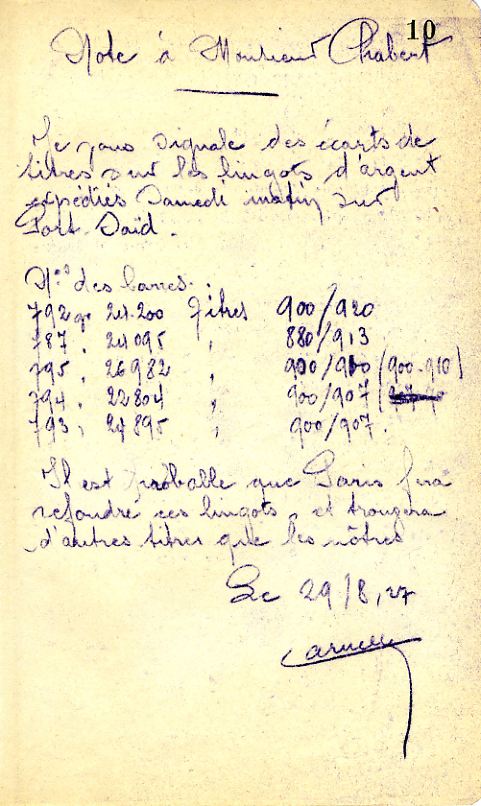 10
Note à Monsieur Chabert
Je vous signale des écarts de
titres sur les lingots d'argent
expédiés Samedi matin sur
Port Saïd.
Nos des barres :
792 gr 24.200 Titres 900/920
787 , 24095 , 880/913
795 , 26982 , 900/900 (900-910)
794 , 22804 , 900/907
793 , 24895 , 900/907.
Il est probable que Paris fera
refondre ces lingots, et trouvera
d'autres titres que les nôtres
Le 29/8,27